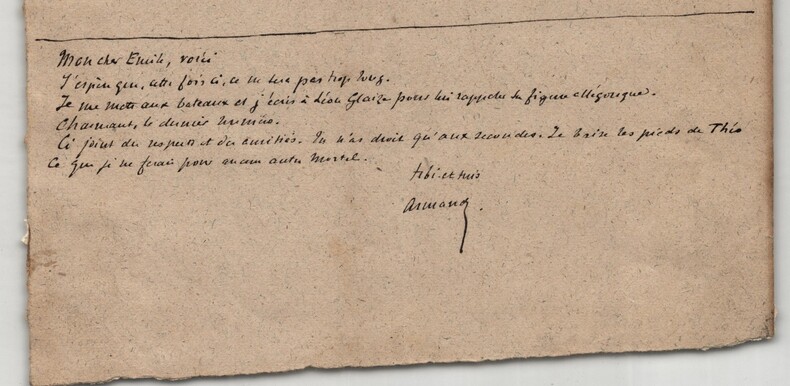 Mon cher Emile, voici
J'espère que, cette fois ci, ce ne sera pas trop long.
Je me mets aux bateaux et j'écris à Léon Glaize pour lui rappeler sa figure allégorique.
Charmant, le dernier numéro.
Ci joint des respects et des amitiés. Tu n'as droit qu'aux secondes. Je baise les pieds de Théo
Ce que je ne ferais pour aucun autre mortel.
tibi et
Armand.